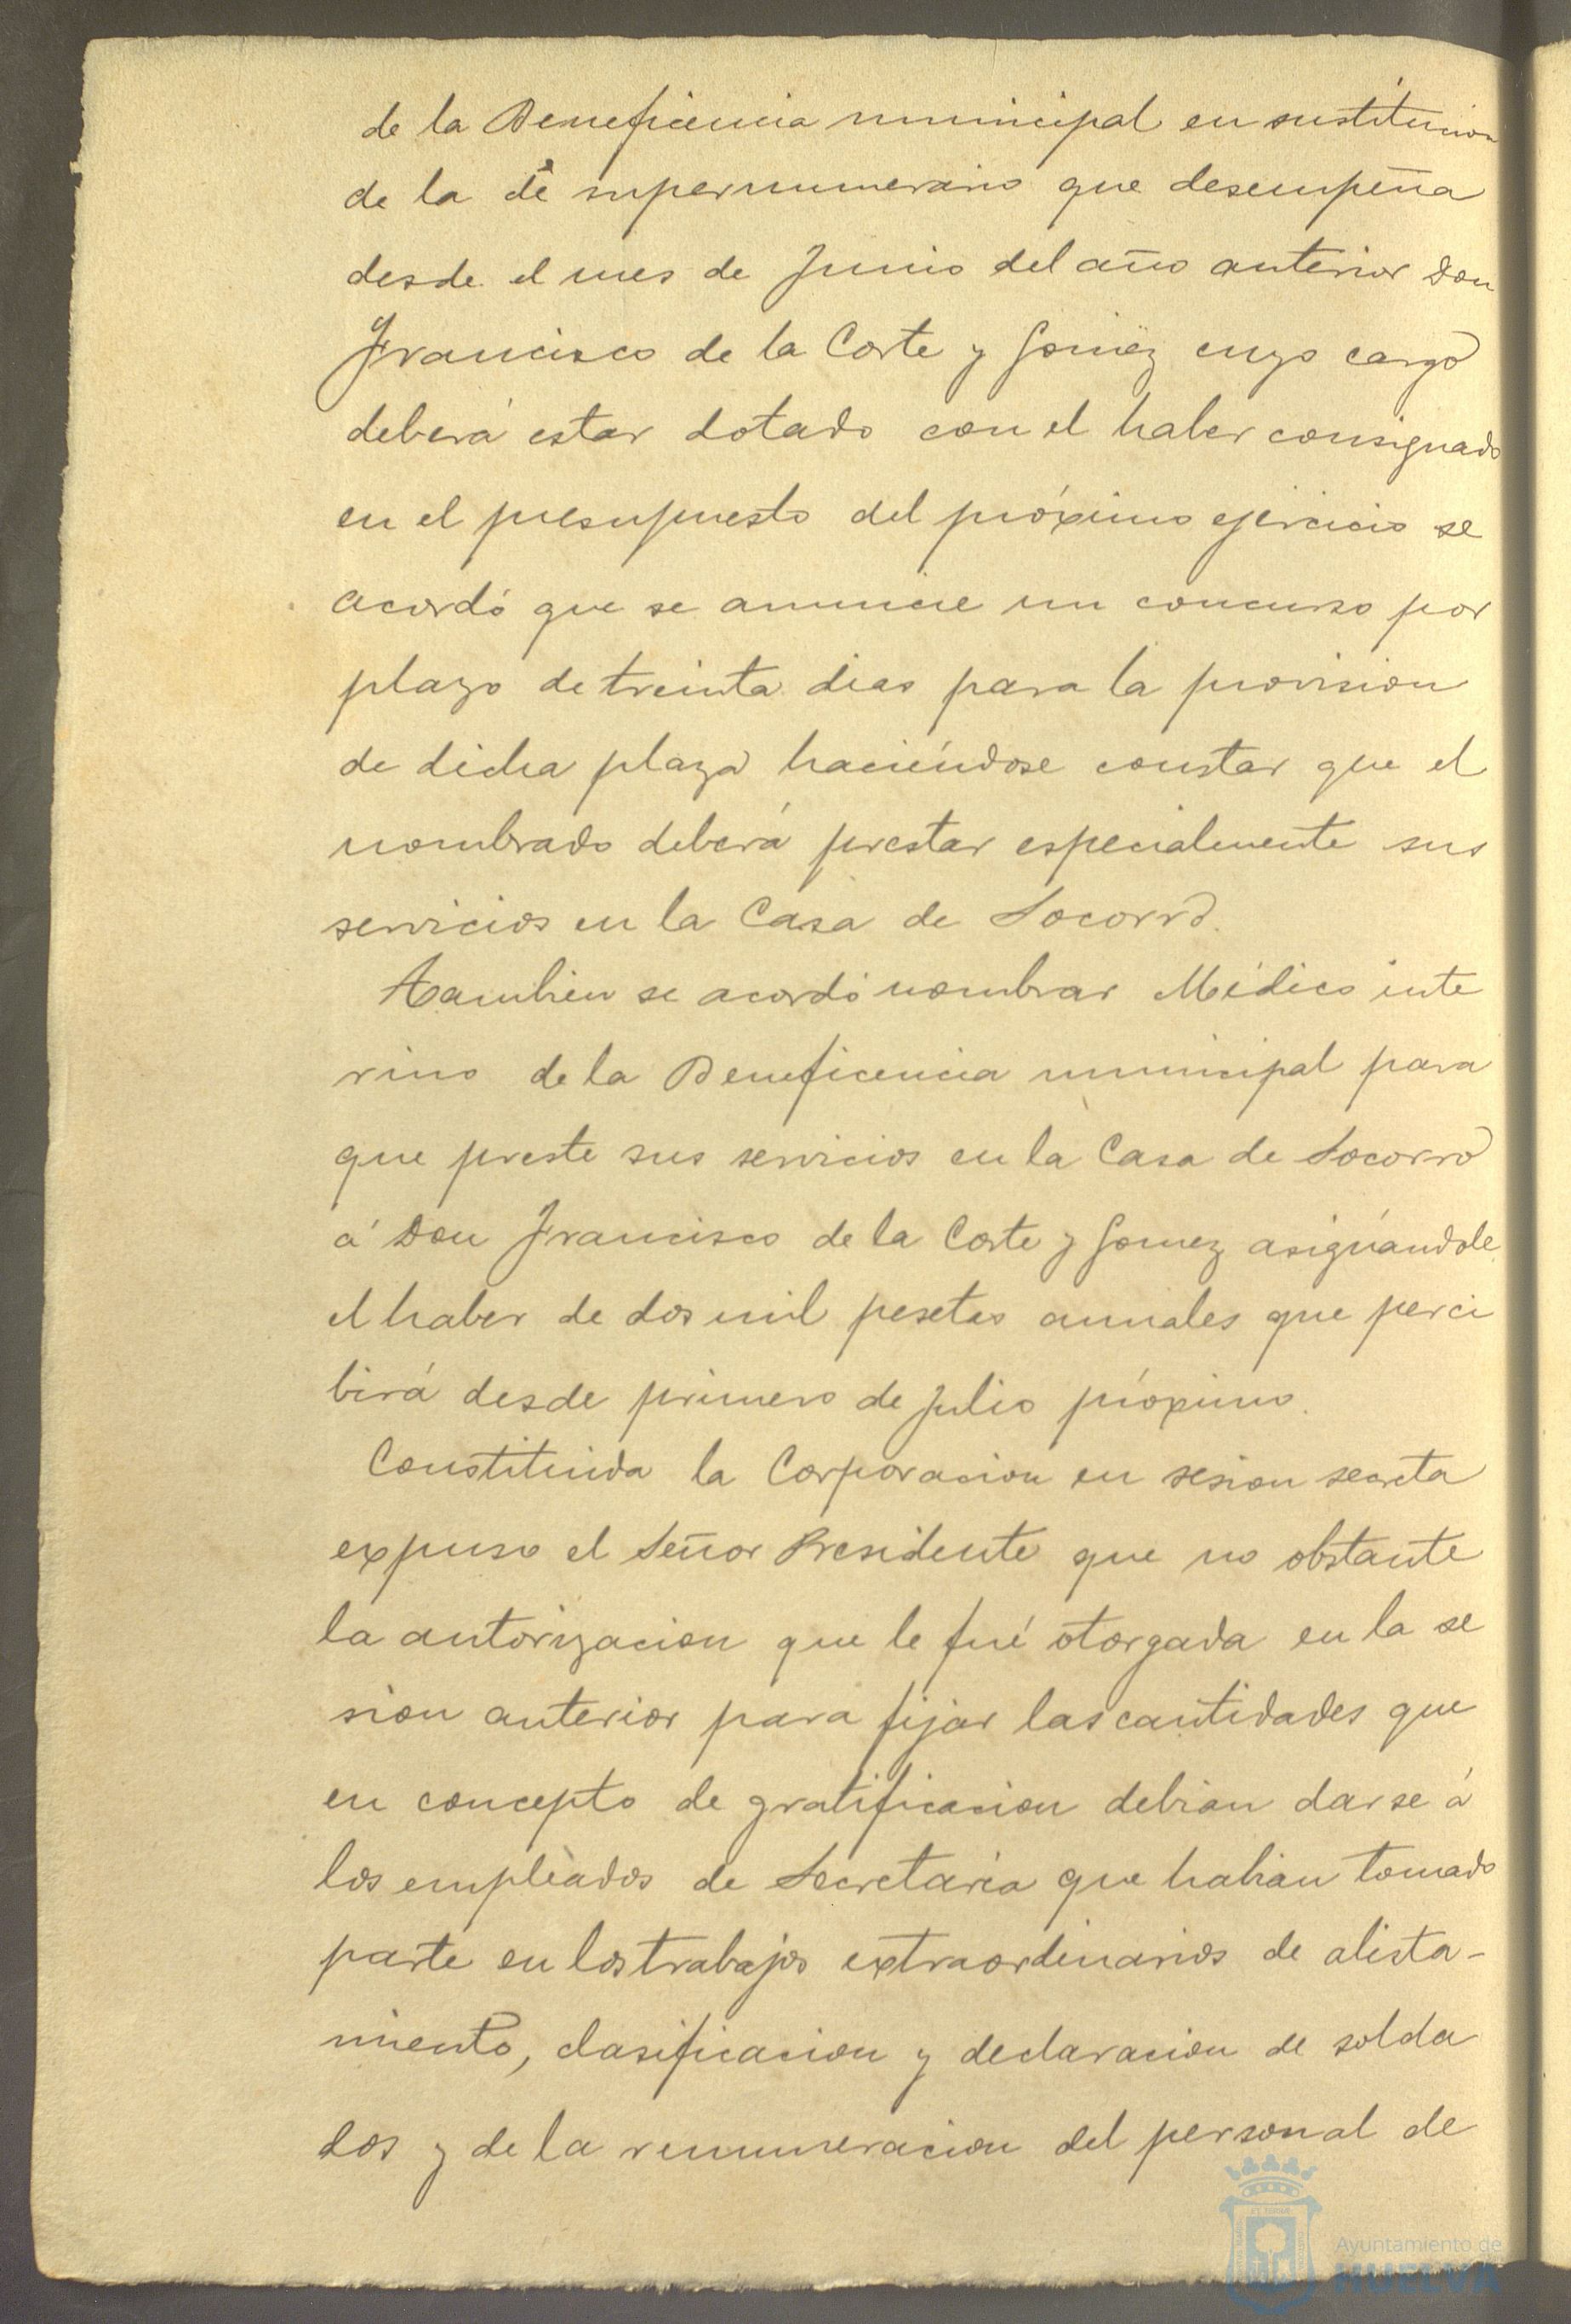 de la Beneficencia municipal en sustitucion
de la de supernumerario que desempeña
desde el mes de Junio del año anterior Don
Francisco de la Corte y Gomez cuyo cargo
deberá estar dotado con el haber consignado
en el presupuesto del próximo ejercicio se
acordó que se anuncie un concurso por
plazo de treinta dias para la provision
de dicha plaza haciéndose constar que el
nombrado deberá prestar especialmente sus
servicios en la Casa de Socorro.
Tambien se acordó nombrar Médico inte
rino de la Beneficencia municipal para
que preste sus servicios en la Casa de Socorro
á Don Francisco de la Corte y Gomez asignándole
el haber de dos mil pesetas anuales que perci
birá desde primero de Julio próximo.
Constituida la Corporacion en sesion secreta
expuso el Señor Presidente que no obstante
la autorizacion que le fué otorgada en la se
sion anterior para fijar las cantidades que
en concepto de gratificacion debian darse á
los empleados de Secretaria que habian tomado
parte en los trabajos extraordinarios de alista-
miento, clasificacion y declaracion de solda
dos y de la remuneracion del personal de
Ayuntamiento de
HUELVA